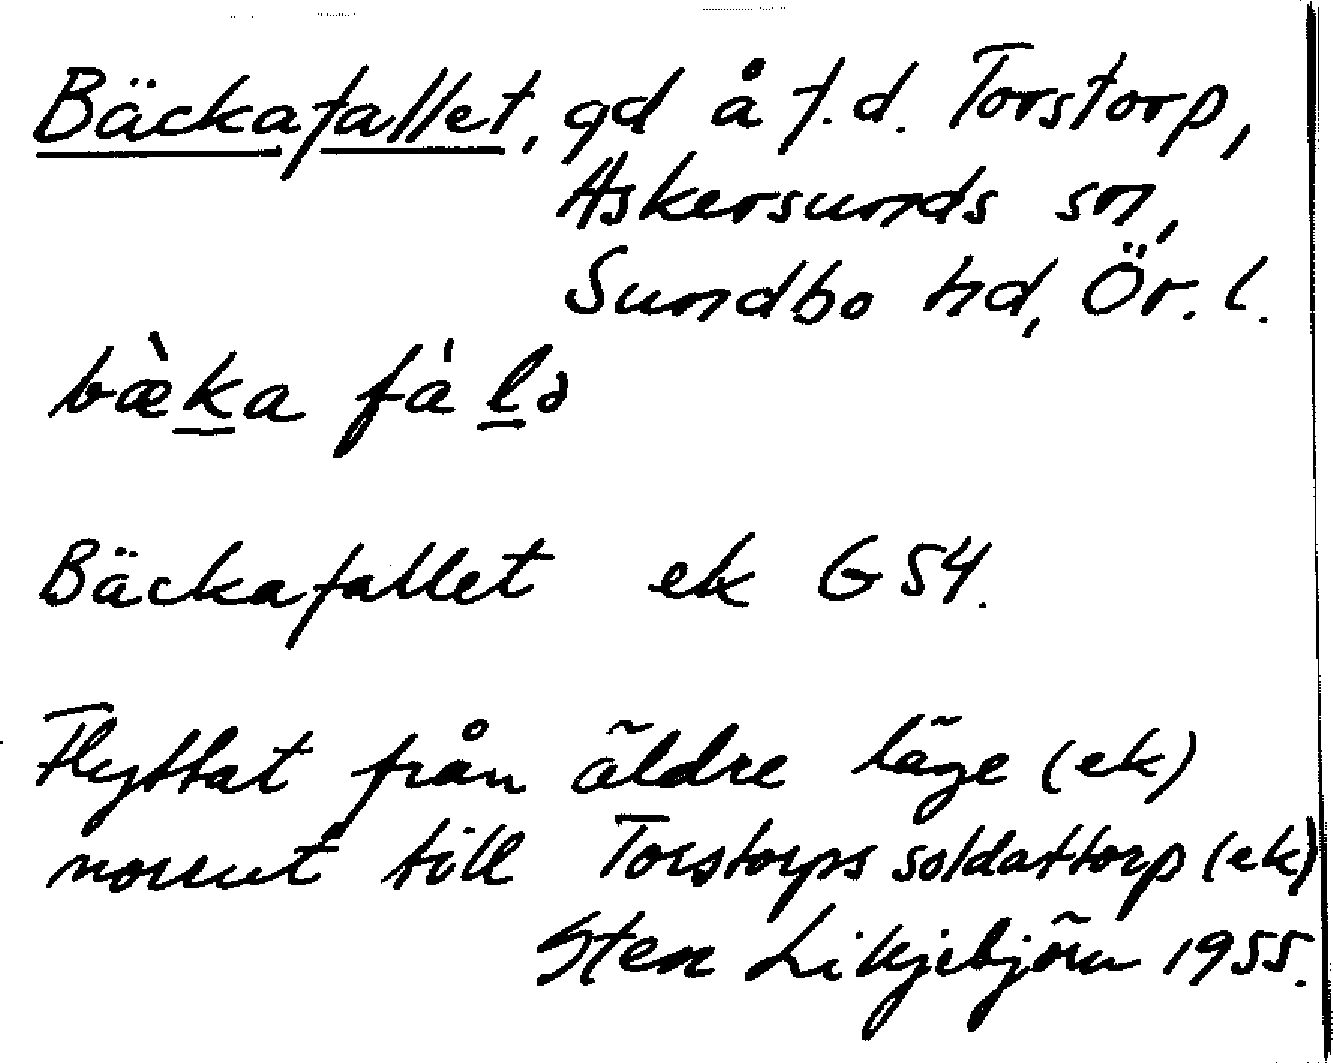 Bäckafallet, gd å f.d. Torstorp,
Askersunds sn,
Sundbo hd, Ör. l.
bæ̀ka fàlə
Bäckafallet ek G 54.
Flyttat från äldre läge (ek)
norrut till Torstorps soldattorp (ek)
Sten 1955.